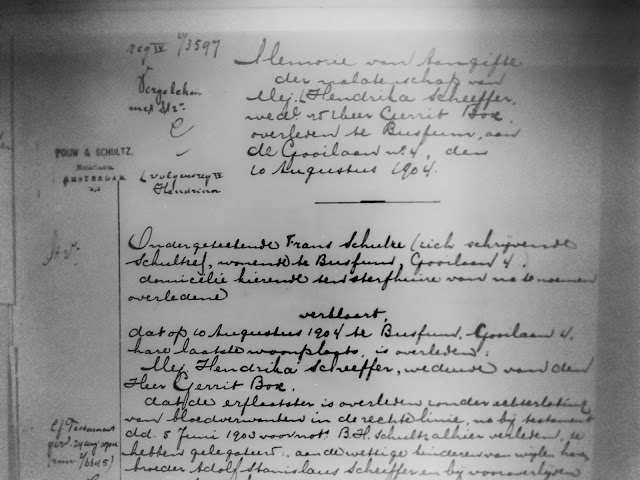 reg IV 9/3597
Vergeleken
met
Memorie van Aangifte
der nalatenschap van
Mej. (Hendrika Scheeffer,
wed. v. d. Heer Gerrit Box,
overleden te Bussum, aan
de Gooilaan no. 4, den
10 Augustus 1904.
POUW & SCHULTZ.
Notarissen
AMSTERDAM.
(volgens reg IV
Hendrina
Ondergeteekende Frans Schultze (zich schrijvende
Schultze), wonende te Bussum, Gooilaan 4,
domicilie kiezende ten sterfhuize van na te noemen
overledene
verklaart,
dat op 10 Augustus 1904 te Bussum, Gooilaan 4,
hare laatste woonplaats, is overleden:
Mej. Hendrika Scheeffer, weduwe van den
Heer Gerrit Box.
dat de erflaatster is overleden zonder achterlating
van bloedverwanten in de rechte linie, na bij testament
dd. 5 Juni 1903 voor not. B. H. Schultz alhier verleden, te
hebben gelegateerd: aan de wettige kinderen van wijlen haren
broeder Adolf Stanislaus Scheeffer en bij vooroverlijden
Cf. Testament